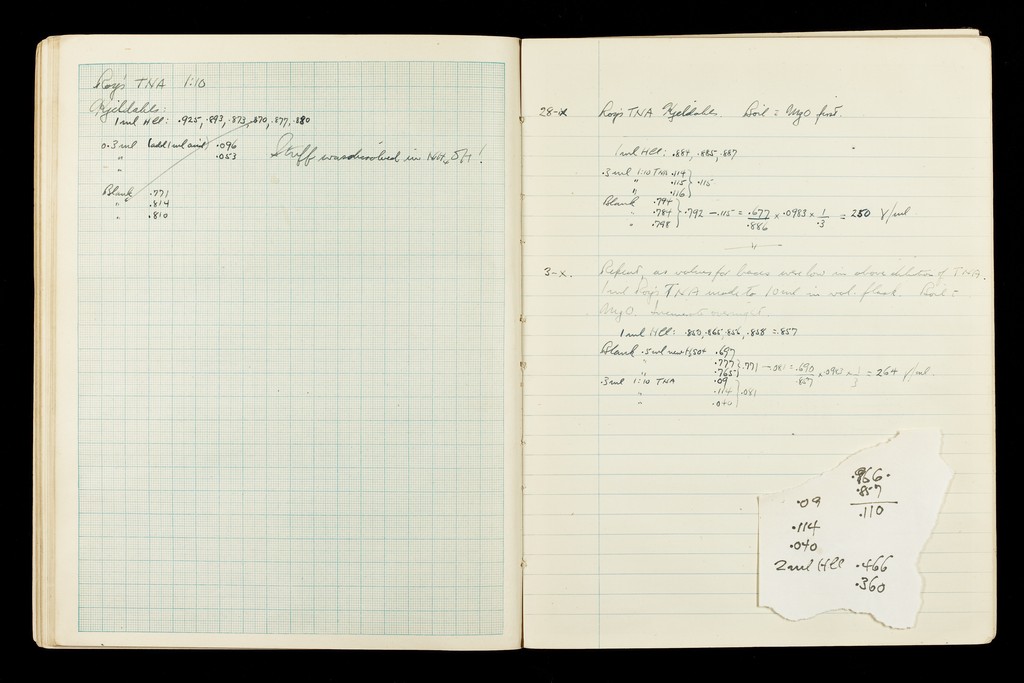 Roy's TNA 1:10
Kjeldahls:
1 ml HCl: .925, .893, .873, .870, .877, .880
0.3 ml (add 1 ml acid) .096
" .053
" -
Blank .771
" .814
" .810
Stuff was dissolved in NH4OH!
28-x Roy's TNA Kjeldahls. Boil = MgO first.
1 ml HCl: .884, .885, .887
.3 ml 1:10 TNA .114
" .115 } .115
" .116
Blank .794
" .784 } .792 - .115 = .677/.886 x .0983 x 1/.3 = 250 γ/ml
" .798
3-x. Repeat, as values for bases were low in above dilution of TNA.
1 ml Roy's TNA made to 10 ml in vol. flask. Boil =
MgO. overnight.
1 ml HCl: .850, .865, .856, .858 = .857
Blank .5 ml new H2SO4 .697
" .777 } .771 - .081 = .690/.857 x = 264 γ/ml.
" .765
.3 ml 1:10 TNA .09
" .114 } .081
" .040
.966.
.857
.110
.09
.114
.040
2 ml HCl .466
.360